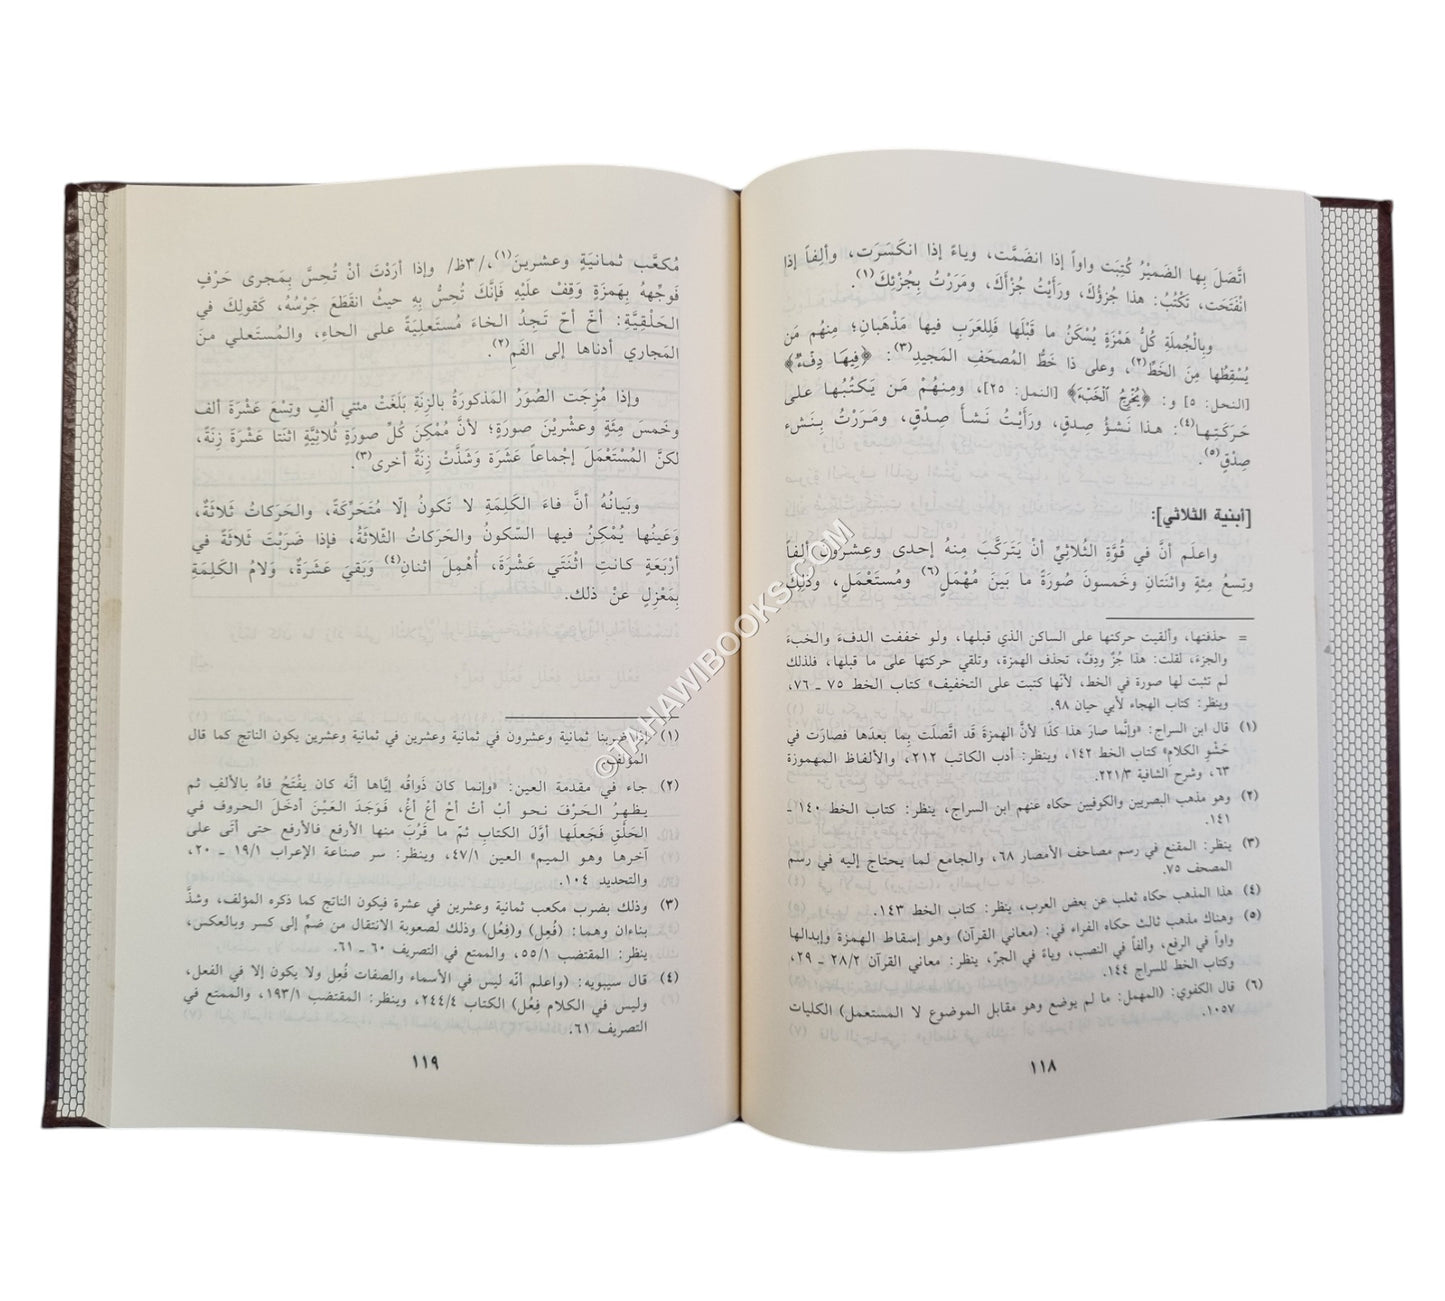 اتَّصَلَ بها الضَميْرُ كُتِبَت واواً إذا انضَمَّت، وياءً إذا انكَسَرَت، وألِفاً إذا
انْفَتَحَت، تَكْتُبُ: هذا جُزؤُكَ، ورَأيْتُ جُزْأَكَ، ومَرَرْتُ بِجُزْئِكَ(١).
وبِالْجُملَةِ كُلُّ هَمْزَةٍ يُسْكَنُ ما قَبْلَها فَلِلعَرَبِ فيها مَذْهَبانِ؛ مِنهُم مَن
يُسْقِطُها مِنَ الخَطِّ(٢)، وعلى ذا خَطُّ المُصحَفِ المَجيدِ(٣): ﴿فِيهَا دِفْءٌ﴾
[النحل: ٥] و: ﴿يُخْرِجُ ٱلْخَبْءَ﴾ [النمل: ٢٥]، ومِنهُمْ مَن يَكتُبُها على
حَرَكَتِها(٤): هذا نَشؤُ صِدقٍ، ورَأَيْتُ نَشأَ صِدْقٍ، ومَرَرْتُ بِنَشء
صِدْقٍ(٥).
[أبنية الثلاثي]:
واعلَم أنَّ في قُوَّةِ الثُلاثيِّ أنْ يَتَرَكَّبَ مِنهُ إحدى وعِشرُونَ ألفاً
وتِسعُ مِئةٍ واثنَتانِ وخَمسونَ صُورَةً ما بَينَ مُهْمَلٍ(٦) ومُستَعْمَلٍ، وذلِكَ
= حذفتها، وألقيت حركتها على الساكن الذي قبلها، ولو خففت الدفءَ والخبءَ
والجزءَ، لقلت: هذا جُزٌ ودِفٌ، تحذف الهمزة، وتلقي حركتها على ما قبلها، فلذلك
لم تثبت لها صورة في الخط، لأنّها كتبت على التخفيف» كتاب الخط ٧٥ ـ ٧٦،
وينظر: كتاب الهجاء لأبي حيان ٩٨.
(١) قال ابن السراج: «وإنَّما صارَ هذا كذا لأنَّ الهمزةَ قد اتَّصلَت بِما بعدَها فصارَت في
حَشْوِ الكلامِ» كتاب الخط ١٤٢، وينظر: أدب الكاتب ٢١٢، والألفاظ المهموزة
٦٣، وشرح الشافية ٢٢١/٣.
(٢) وهو مذهب البصريين والكوفيين حكاه عنهم ابن السراج، ينظر: كتاب الخط ١٤٠ ـ
١٤١.
(٣) ينظر: المقنع في رسم مصاحف الأمصار ٦٨، والجامع لما يحتاج إليه في رسم
المصحف ٧٥.
(٤) هذا المذهب حكاه ثعلب عن بعض العرب، ينظر: كتاب الخط ١٤٣.
(٥) وهناك مذهب ثالث حكاه الفراء في: (معاني القرآن) وهو إسقاط الهمزة وإبدالها
واواً في الرفع، وألفاً في النصب، وياءً في الجرّ، ينظر: معاني القرآن ٢٨/٢ ـ ٢٩،
وكتاب الخط للسراج ١٤٤.
(٦) قال الكفوي: (المهمل: ما لم يوضع وهو مقابل الموضوع لا المستعمل) الكليات
١٠٥٧.
١١٨
مُكعَّب ثمانيَةٍ وعشرينَ(١)، /٣ظ/ وإذا أرَدْتَ أنْ تُحِسَّ بِمَجرى حَرْفٍ
فَوَجِّههُ بِهَمزَةٍ وَقِفْ علَيْهِ فَإنَّكَ تُحِسُّ بِهِ حيثُ انقَطَعَ جَرْسُهُ، كَقولِكَ في
الحَلْقِيَّةِ: أخّ أحّ تَجِدُ الخاءَ مُستَعلِيَةً على الحاءِ، والمُستَعلي منَ
المَجاري أدناها إلى الفَمِ(٢).
وإذا مُزِجَت الصُوَرُ المَذكورَةُ بالزِنَةِ بَلَغَتْ مئتي ألفٍ وتِسعَ عَشْرَةَ ألف
وخَمسَ مِئةٍ وعشْريْنَ صورَةً؛ لأنَّ مُمْكِنَ كُلِّ صورَةٍ ثُلاثيَّةٍ اثنَتا عَشْرَةَ زِنَةً،
لكنَّ المُسْتَعْمَلَ إجْماعاً عَشَرَة وَشَذَّتْ زِنَةٌ أخرى(٣).
وبَيانُهُ أنَّ فاءَ الكَلِمَةِ لا تَكونُ إلّا مُتَحَرِّكَةً، والحَرَكاتُ ثَلاثَةٌ،
وَعَينُها يُمْكِنُ فيها السّكونُ والحَرَكاتُ الثّلاثَةُ، فإذا ضَرَبْتَ ثَلاثَةً في
أرْبَعَةٍ كانتِ اثْنَتَي عَشْرَةَ، أُهْمِلَ اثنانِ(٤) وَبَقيَ عَشَرَةٌ، وَلامُ الكَلِمَةِ
بِمَعْزِلٍ عنْ ذلك.
(١) إذا ضربنا ثمانية وعشرون في ثمانية وعشرين في ثمانية وعشرين يكون الناتج كما قال
المؤلف.
(٢) جاء في مقدمة العين: «وإنما كان ذَواقُه إيَّاها أنَّه كان يفْتَحُ فاهُ بالألفِ ثم
يظهرُ الحَرْفَ نحو أبْ أتْ أحْ أعْ أغْ، فَوَجَدَ العَيْنَ أدخَلَ الحروف في
الحَلْقِ فَجَعلَها أوَّلَ الكتابِ ثمّ ما قَرُبَ منها الأرفع فالأرفع حتى أتى على
آخرها وهو الميم» العين ٤٧/١، وينظر: سر صناعة الإعراب ١٩/١ ـ ٢٠،
والتحديد ١٠٤.
(٣) وذلك بضرب مكعب ثمانية وعشرين في عشرة فيكون الناتج كما ذكره المؤلف، وشذَّ
بناءان وهما: (فُعِل) و(فِعُل) وذلك لصعوبة الانتقال من ضمٍّ إلى كسر وبالعكس،
ينظر: المقتضب ٥٥/١، والممتع في التصريف ٦٠ ـ ٦١.
(٤) قال سيبويه: (واعلم أنّه ليس في الأسماء والصفات فُعِل ولا يكون إلا في الفعل،
وليس في الكلام فِعُل) الكتاب ٢٤٤/٤، وينظر: المقتضب ١٩٣/١، والممتع في
التصريف ٦١.
١١٩
©TAHAWIBOOKS.COM